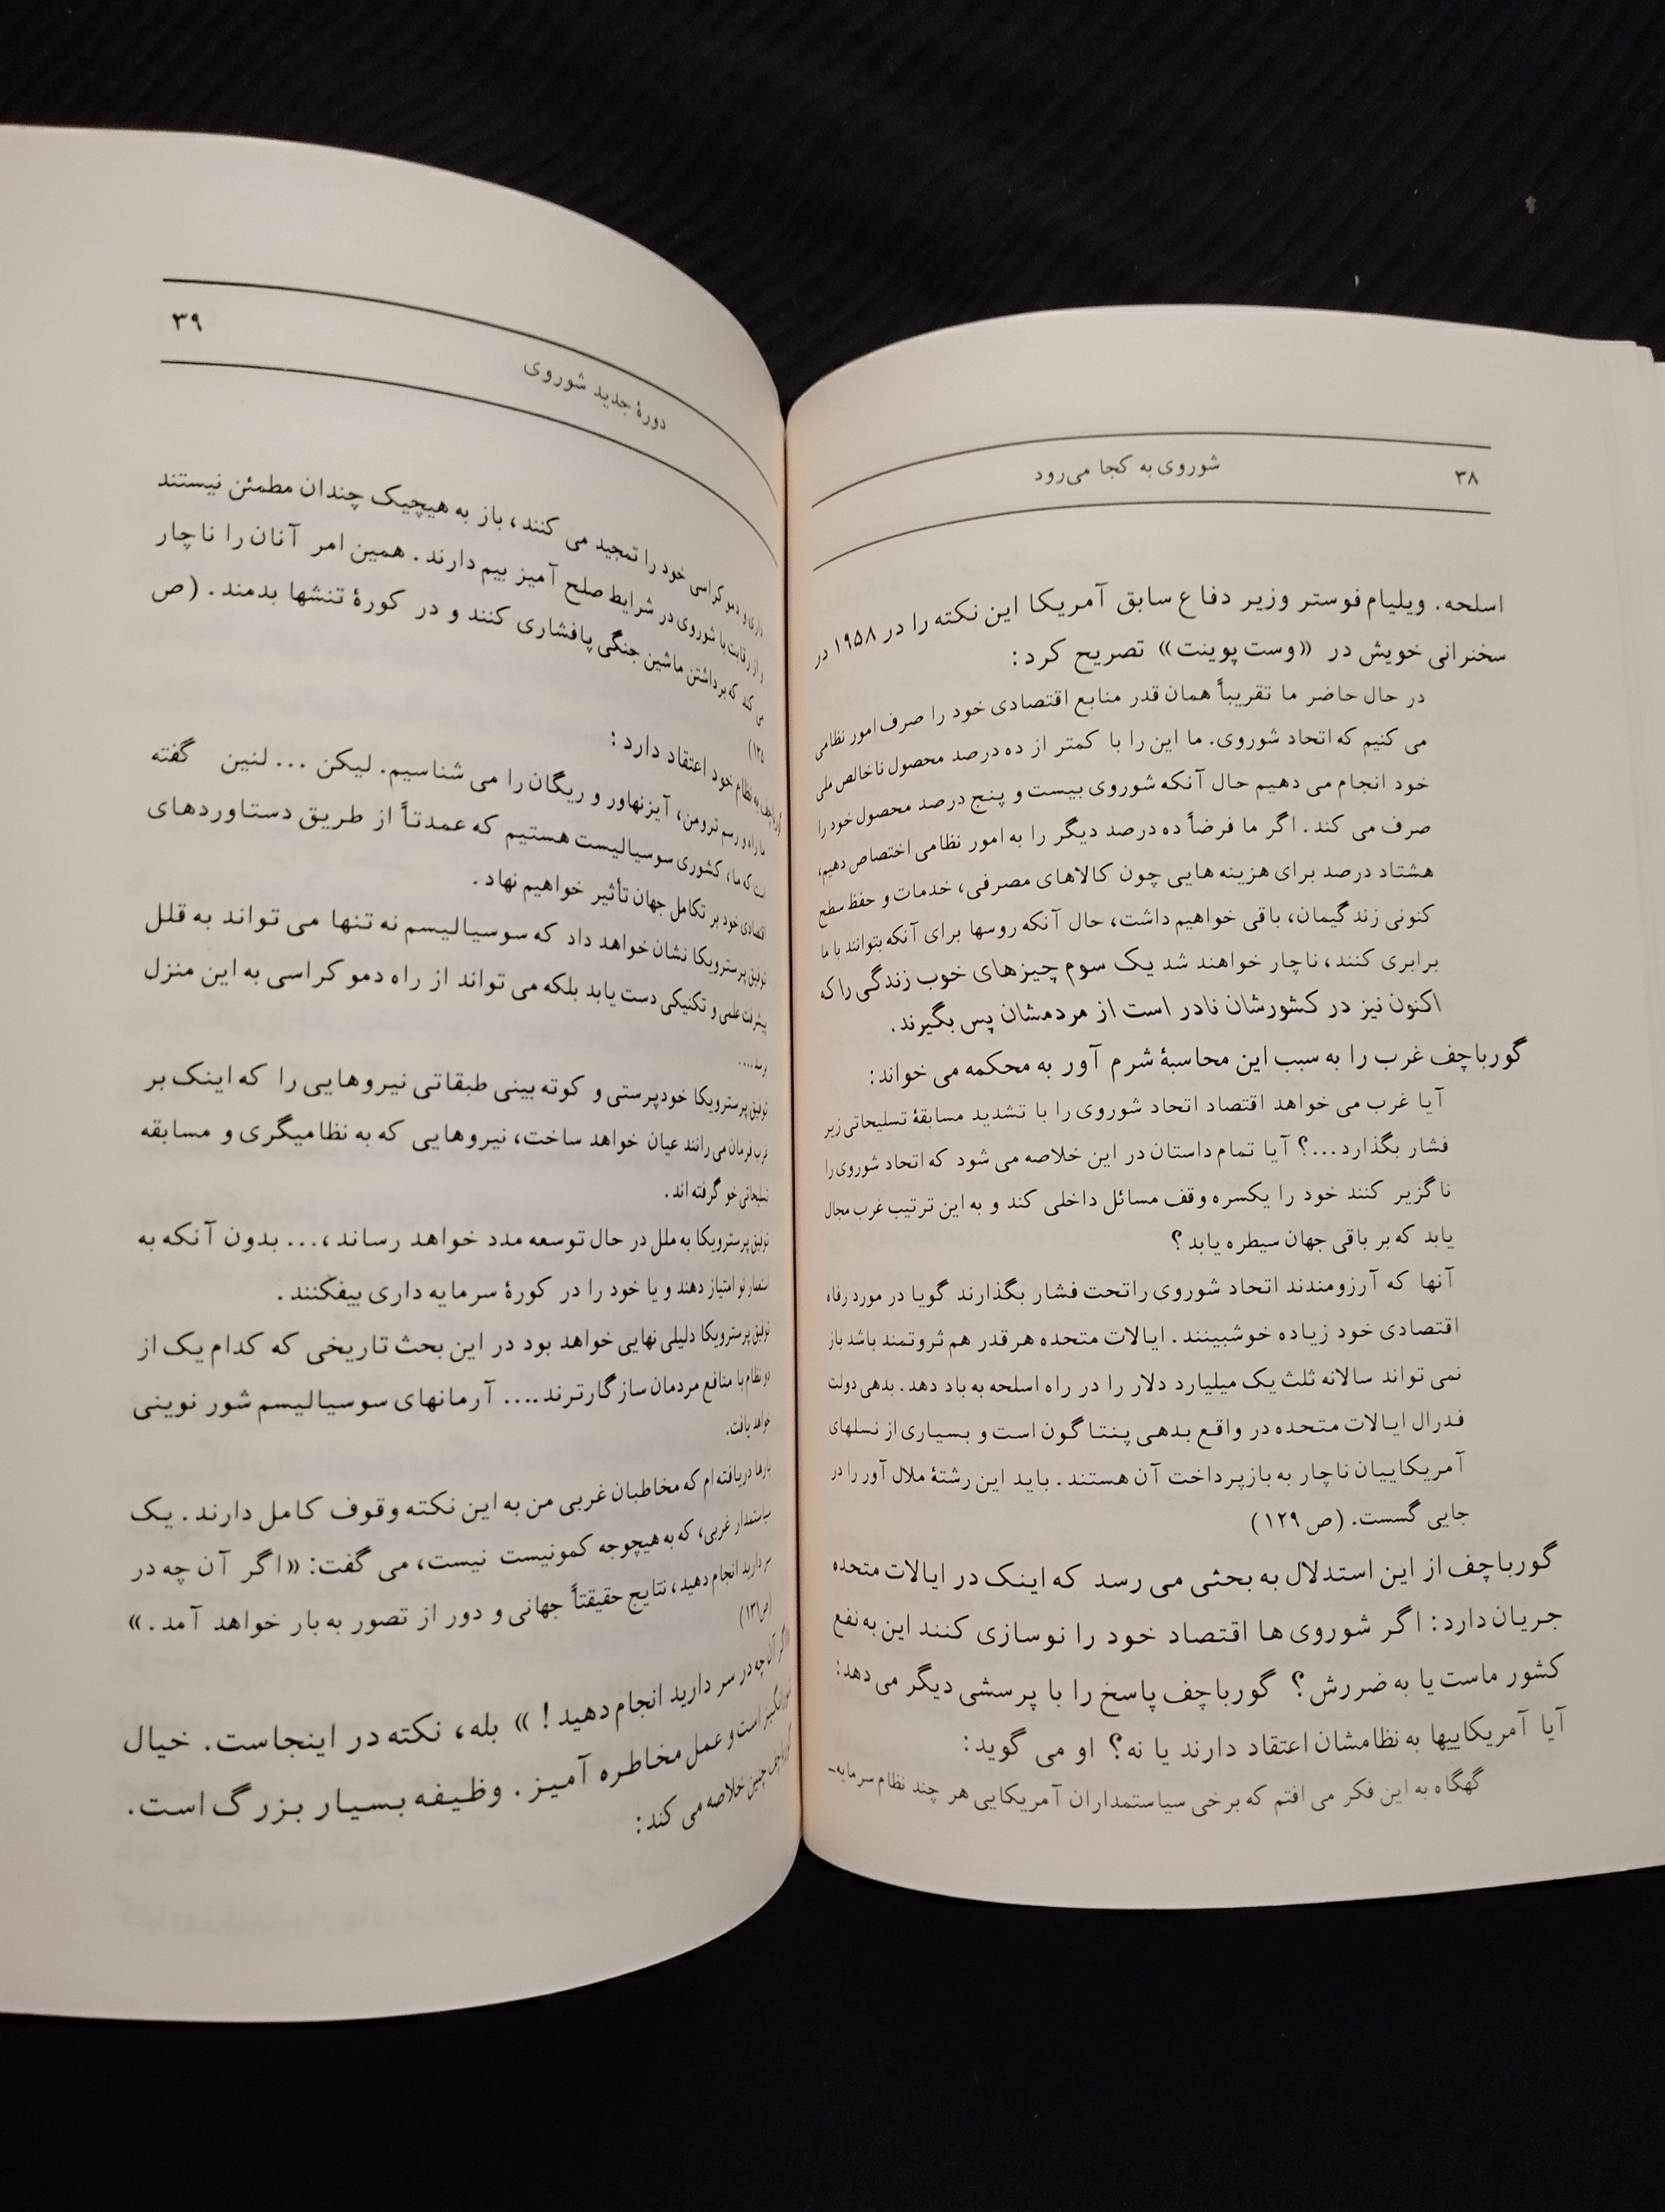 ۳۸
شوروی به کجا می‌رود
اسلحه. ویلیام فوستر وزیر دفاع سابق آمریکا این نکته را در ۱۹۵۸ در
سخنرانی خویش در «وست پوینت» تصریح کرد:
در حال حاضر ما تقریباً همان قدر منابع اقتصادی خود را صرف امور نظامی
می کنیم که اتحاد شوروی. ما این را با کمتر از ده درصد محصول ناخالص ملی
خود انجام می دهیم حال آنکه شوروی بیست و پنج درصد محصول خود را
صرف می کند. اگر ما فرضاً ده درصد دیگر را به امور نظامی اختصاص دهیم،
هشتاد درصد برای هزینه هایی چون کالاهای مصرفی، خدمات و حفظ سطح
کنونی زندگیمان، باقی خواهیم داشت، حال آنکه روسها برای آنکه بتوانند با ما
برابری کنند، ناچار خواهند شد یک سوم چیزهای خوب زندگی را که
اکنون نیز در کشورشان نادر است از مردمشان پس بگیرند.
گورباچف غرب را به سبب این محاسبهٔ شرم آور به محکمه می خواند:
آیا غرب می خواهد اقتصاد اتحاد شوروی را با تشدید مسابقهٔ تسلیحاتی زیر
فشار بگذارد...؟ آیا تمام داستان در این خلاصه می شود که اتحاد شوروی را
ناگزیر کنند خود را یکسره وقف مسائل داخلی کند و به این ترتیب غرب مجال
یابد که بر باقی جهان سیطره یابد؟
آنها که آرزومندند اتحاد شوروی را تحت فشار بگذارند گویا در مورد رفاه
اقتصادی خود زیاده خوشبینند. ایالات متحده هر قدر هم ثروتمند باشد باز
نمی تواند سالانه ثلث یک میلیارد دلار را در راه اسلحه به باد دهد. بدهی دولت
فدرال ایالات متحده در واقع بدهی پنتاگون است و بسیاری از نسلهای
آمریکاییان ناچار به بازپرداخت آن هستند. باید این رشتهٔ ملال آور را در
جایی گسست. (ص ۱۲۹)
گورباچف از این استدلال به بحثی می رسد که اینک در ایالات متحده
جریان دارد: اگر شوروی ها اقتصاد خود را نوسازی کنند این به نفع
کشور ماست یا به ضررش؟ گورباچف پاسخ را با پرسشی دیگر می دهد:
آیا آمریکاییها به نظامشان اعتقاد دارند یا نه؟ او می گوید:
گهگاه به این فکر می افتم که برخی سیاستمداران آمریکایی هر چند نظام سرمایه-
۳۹
دورهٔ جدید شوروی
داری و دموکراسی خود را تمجید می کنند، باز به هیچیک چندان مطمئن نیستند
و از رقابت با شوروی در شرایط صلح آمیز بیم دارند. همین امر آنان را ناچار
می کند که بر داشتن ماشین جنگی پافشاری کنند و در کورهٔ تنشها بدمند. (ص
گورباچف به نظام خود اعتقاد دارد:
ما راه و رسم ترومن، آیزنهاور و ریگان را می شناسیم. لیکن ... لنین گفته
است که ما، کشوری سوسیالیست هستیم که عمدتاً از طریق دستاوردهای
اقتصادی خود بر تکامل جهان تأثیر خواهیم نهاد.
توفیق پرسترویکا نشان خواهد داد که سوسیالیسم نه تنها می تواند به قلل
پیشرفت علمی و تکنیکی دست یابد بلکه می تواند از راه دموکراسی به این منزل
برسد....
توفیق پرسترویکا خودپرستی و کوته بینی طبقاتی نیروهایی را که اینک بر
غرب فرمان می رانند عیان خواهد ساخت، نیروهایی که به نظامیگری و مسابقه
تسلیحاتی خو گرفته اند.
توفیق پرسترویکا به ملل در حال توسعه مدد خواهد رساند،... بدون آنکه به
استعمار نو امتیاز دهند و یا خود را در کورهٔ سرمایه داری بیفکنند.
توفیق پرسترویکا دلیلی نهایی خواهد بود در این بحث تاریخی که کدام یک از
دو نظام با منافع مردمان سازگارترند.... آرمانهای سوسیالیسم شور نوینی
خواهد یافت.
بارها دریافته ام که مخاطبان غربی من به این نکته وقوف کامل دارند. یک
سیاستمدار غربی، که به هیچوجه کمونیست نیست، می گفت: «اگر آن چه در
سر دارید انجام دهید، نتایج حقیقتاً جهانی و دور از تصور به بار خواهد آمد.»
(ص ۱۳۱)
اگر آن چه در سر دارید انجام دهید!» بله، نکته در اینجاست. خیال
است و عمل مخاطره آمیز. وظیفه بسیار بزرگ است.
گورباچف چنین خلاصه می کند: